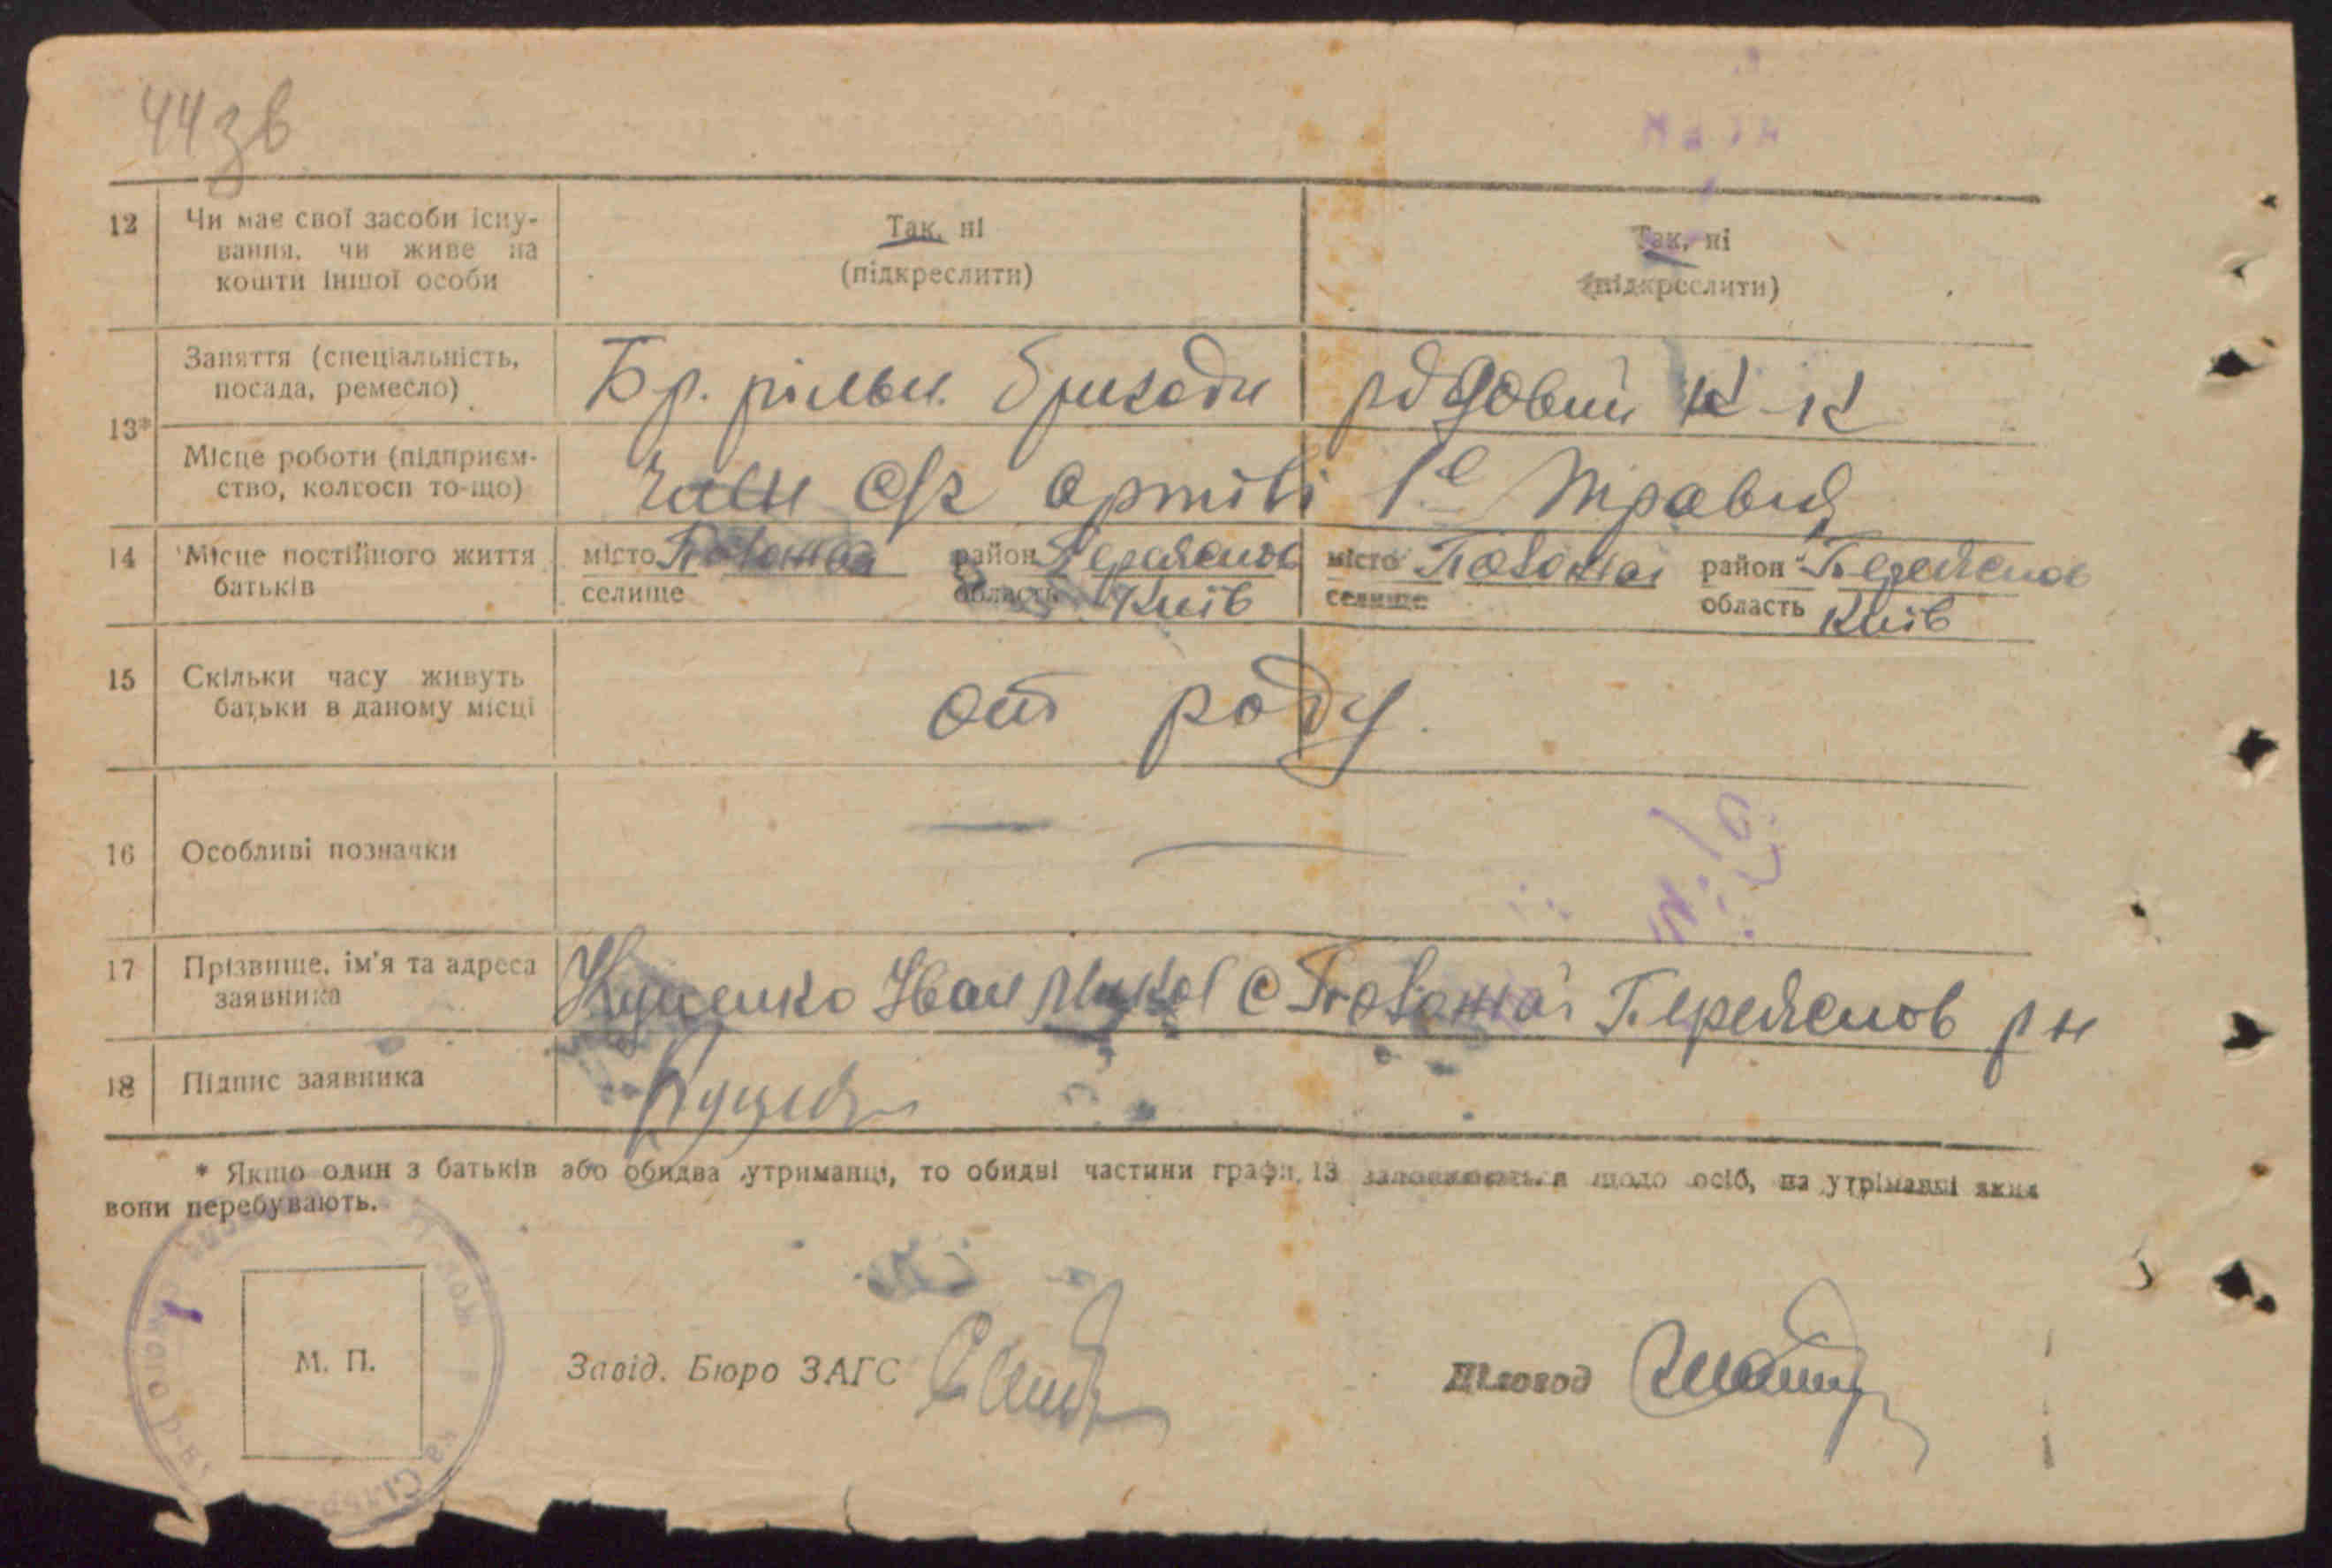 44зв
12 Чи має свої засоби існу-
вання, чи живе на
кошти іншої особи
Так, ні
(підкреслити)
Так, ні
(підкреслити)
13*
Заняття (спеціальність,
посада, ремесло)
Бр. рільн. бригади
рядовий к-к
Місце роботи (підприєм-
ство, колгосп то-що)
член с/г артілі 1е Травня
14 Місце постійного життя
батьків
місто
селище
район Переяслов
область Київ
місто
селище
район Переяслов
область Київ
15 Скільки часу живуть
батьки в даному місці
от роду
16 Особливі позначки
17 Прізвище, ім'я та адреса
заявника
Іван Микол с Переяслов р н
18 Підпис заявника
* Якщо один з батьків або обидва утриманці, то обидві частини графи 13 заповнюються щодо осіб, на утріманні яких
вони перебувають.
М. П.
Завід. Бюро ЗАГС
Діловод